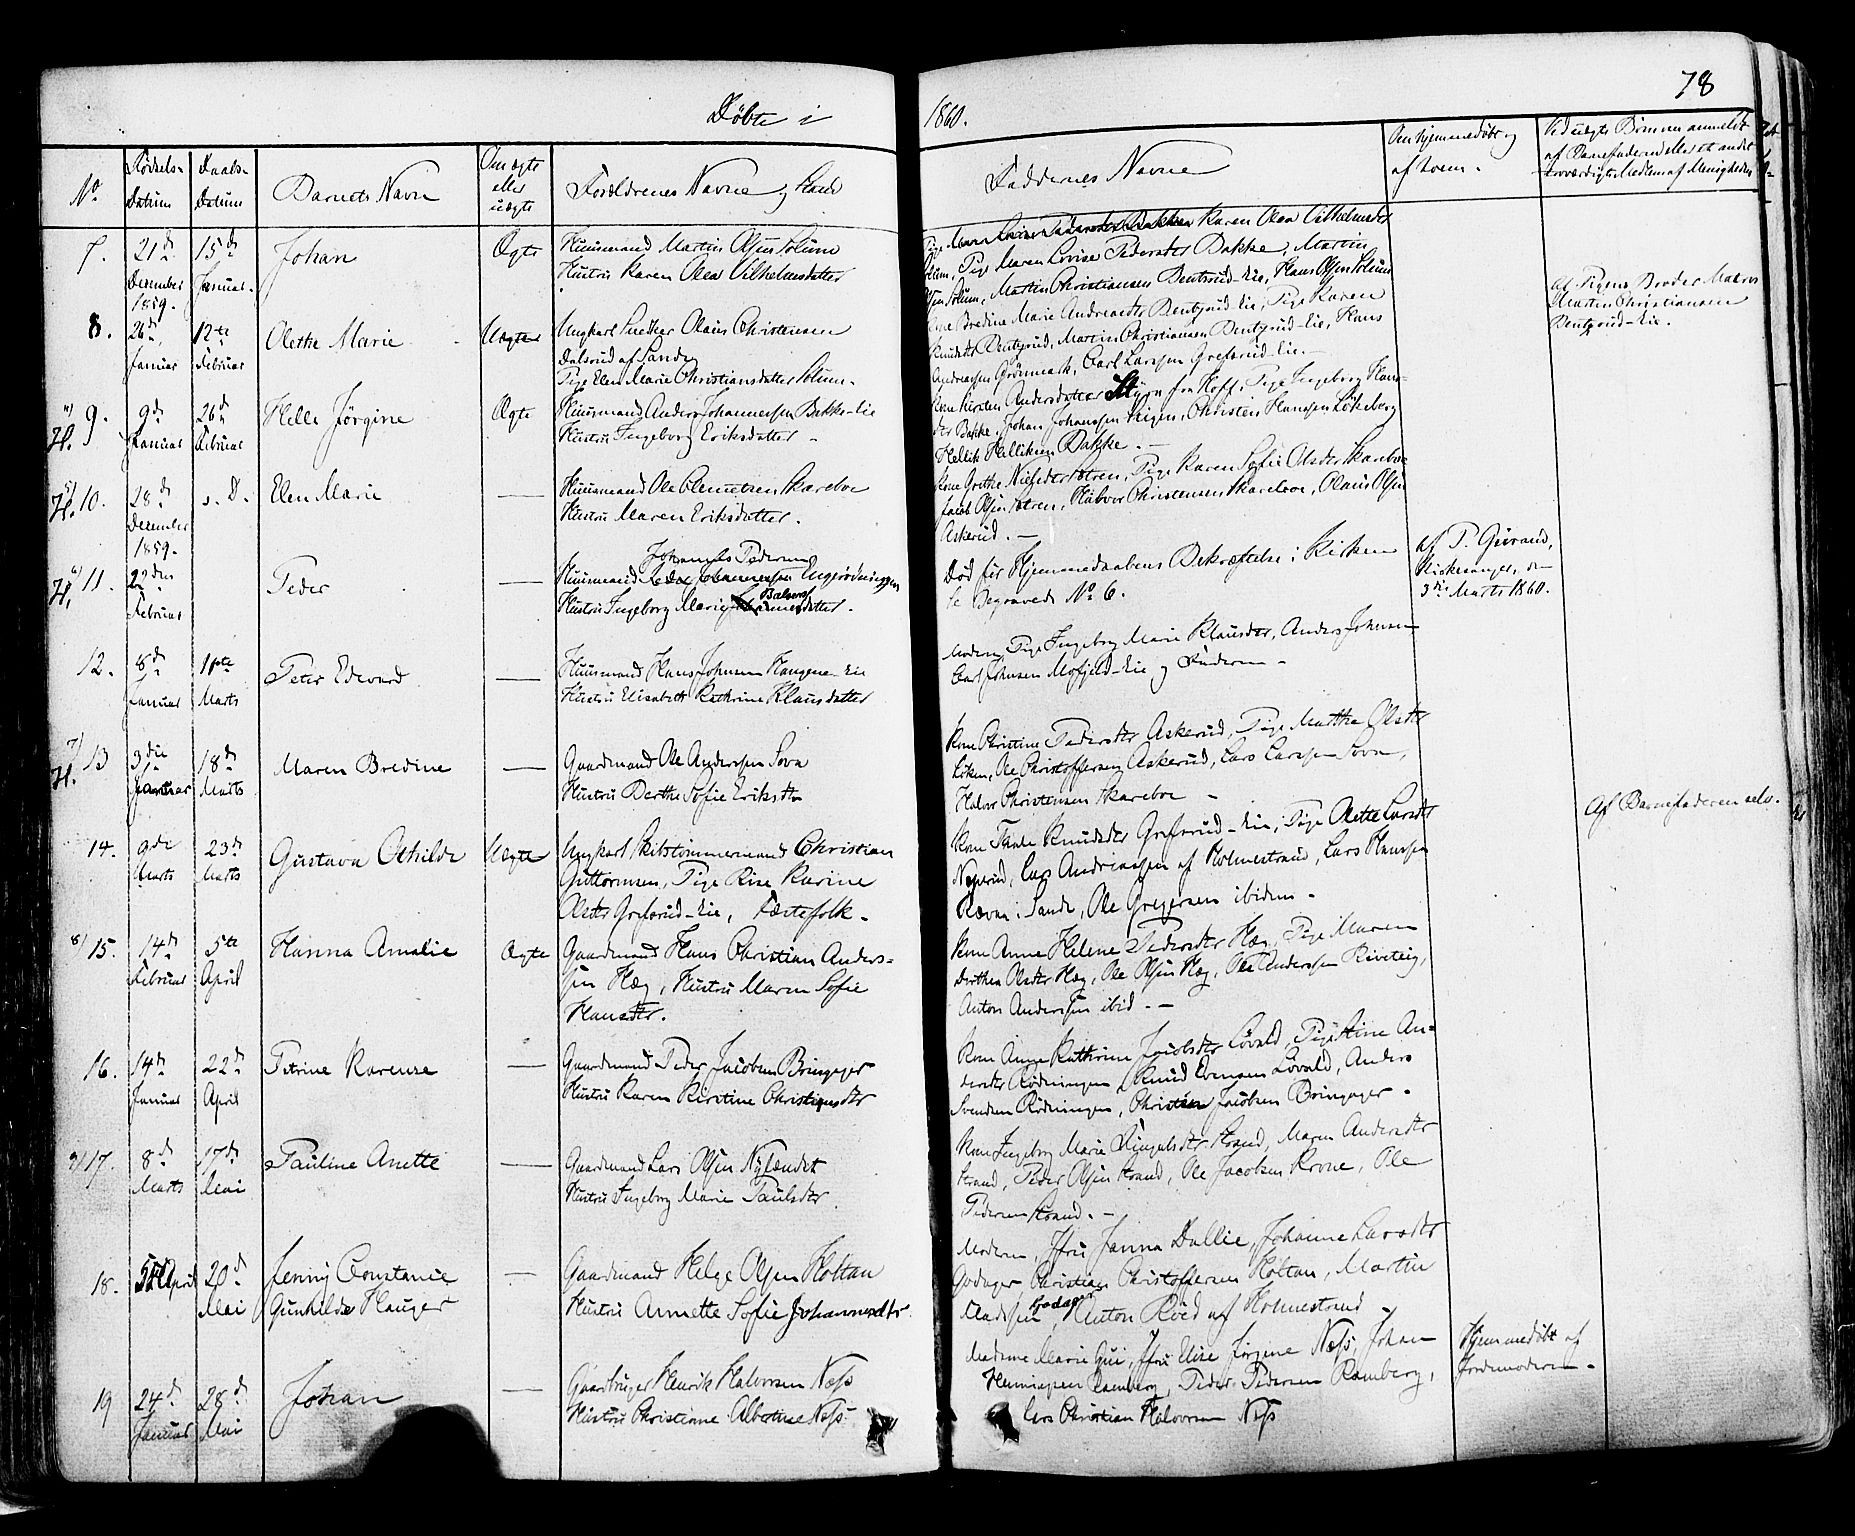 78
Døbte i 1860.
No
Fødsels-
Datum
Daabs-
Datum
Barnets Navn
Om ægte
eller
uægte
Forældrenes Navne og Stand
Faddernes Navne
Om hjemmedøbt og
af hvem.
Ved uægte Børn om anmeldt
af Barnefaderen eller et andet
troværdigt Medlem af Menigheden
7.
21de
December
1859.
15de
Januar.
Johan
Ægte
Huusmand Martin Olsen Solum
Hustru Karen Olea Vilhelmsdatter
Karen Olea Vilhelmsdtr
Solum, Pige Maren Lovise Pedersdtr Bakke, Martin
Olsen Solum, Martin Christiansen Bentsrud-Eie, Hans Olsen Solum
8.
26de
Januar
12te
Februar
Olethe Marie
Uægte
Ungkarl Snedker Olaus Christensen
Dalsrud af Sande
Pige Elen Marie Christiansdatter Solum.
Kone Bredine Marie Andreasdtr Bentsrud-Eie, Pige Karen
Knudsdtr Bentsrud, Martin Christiansen Bentsrud-Eie, Hans
Andreasen Grønmark, Carl Larsen Grefsrud-Eie.
af Pigens Broder Matros
Martin Christiansen
Bentsrud-Eie.
H. 9.
9de
Januar
26de
Februar
Helle Jørgine
Ægte
Huusmand Anders Johannessen Bakke-Eie
Hustru Ingeborg Eriksdatter
Kone Kirsten Andersdatter fra Hoff, Pige Ingeborg Hans-
dtr Bakke, Johan Johansen Christen Hansen Løkeberg
Hellik Helliksen Bakke.
5) H. 10.
28de
December
1859.
s. D.
Elen Marie
—
Huusmand Ole Clemetsen Skareboe
Hustru Maren Eriksdatter.
Kone Grethe Nielsdtr Sætren, Pige Karen Sofie Olsdtr Skareboe
Jacob Olsen Sætren, Halvor Christensen Skareboe, Olaus Olsen
Askerud.
6) H. 11.
22den
Februar
Peder
—
Johannes Pedersen
Huusmand
Hustru Ingeborg Marie Balvors datter.
Død før Hjemmedaabens Bekræftelse i Kirken
se Begravede No 6.
af P.
Kirkesanger, den
3die Marts 1860.
12.
8de
Januar
11te
Marts
Peter Edvard
—
Huusmand Hans Johnsen Haugene-Eie
Hustru Elisabeth Kathrine Klausdatter
Moderen, Pige Ingeborg Marie Klausdtr, Anders Johnsen
Carl Johnsen Mofjeld-Eie og Faderen
7) H. 13
3die
Januar
18de
Marts
Maren Bredine
—
Gaardmand Ole Andersen Sovn
Hustru Berthe Sofie Eriksdtr
Kone Christine Pedersdtr Askerud, Pige Marthe Olsdtr
Løken, Ole Christoffersen Askerud, Lars Larsen Sovn,
Halvor Christensen Skareboe
14.
9de
Marts
23de
Marts
Gustava Othilde
Uægte
Ungkarl Skibstømmermand Christian
Guttormsen, Pige Rise Karine
Olsdtr Grefsrud-Eie, Fæstefolk.
Kone Thale Knudsdtr Grefsrud-Eie, Pige Olette Larsdtr
Lars Andreassen af Holmestrand, Lars Hansen
Ravn i Sande, Ole Gregersen ibidem
Af Barnefaderen selv.
8) 15.
14de
Februar
5te
April
Hanna Amalie
Ægte
Gaardmand Hans Christian Anders-
sen Hæg, Hustru Maren Sofie
Hansdtr.
Kone Anne Helene Pedersdtr Hæg, Pige Maren
Dorthea Olsdtr Hæg, Ole Olsen Hæg, Ole Andersen
Anton Andersen ibid.
16.
14de
Januar
22de
April
Petrine Karense
—
Gaardmand Peder Jacobsen Bringager
Hustru Karen Kirstine Christiansdtr
Kone Anne Kathrine Jacobsdtr Løvald, Pige Stine An-
dersdtr Rødningen, Knud Evensen Løvald, Anders
Svendsen Rødningen, Christian Jacobsen Bringager.
9) 17.
8de
Marts
17de
Mai
Pauline Anette
—
Gaardmand Lars Olsen Nylændet
Hustru Ingeborg Marie Paulsdtr
Kone Ingeborg Marie Strand, Maren Andersdtr
Strand, Peder Olsen Strand, Ole Jacobsen Krone, Ole
Pedersen Strand.
18.
5te April
20de
Mai
Jenny Constance
Gunhilde Hauger
—
Gaardmand Helge Olsen Holtan
Hustru Annette Sofie Johannesdtr.
Moderen, Jfru Janna Dallie, Johanne Larsdtr
Godager Christian Christoffersen Holtan, Martin
Madssen Godager, Anton Røed af Holmestrand
19
24de
Januar
28de
Mai
Johan
—
Gaardbruger Henrik Halvorsen Næss
Hustru Christiane Albertine Næss.
Madame Marie Gui, Jfru Elise Jørgine Næss, Johan
Henningsen Ramberg, Peder Pedersen Ramberg,
Lars Christian Halvorsen Næss
Hjemmedøbt af
Jordemoderen.